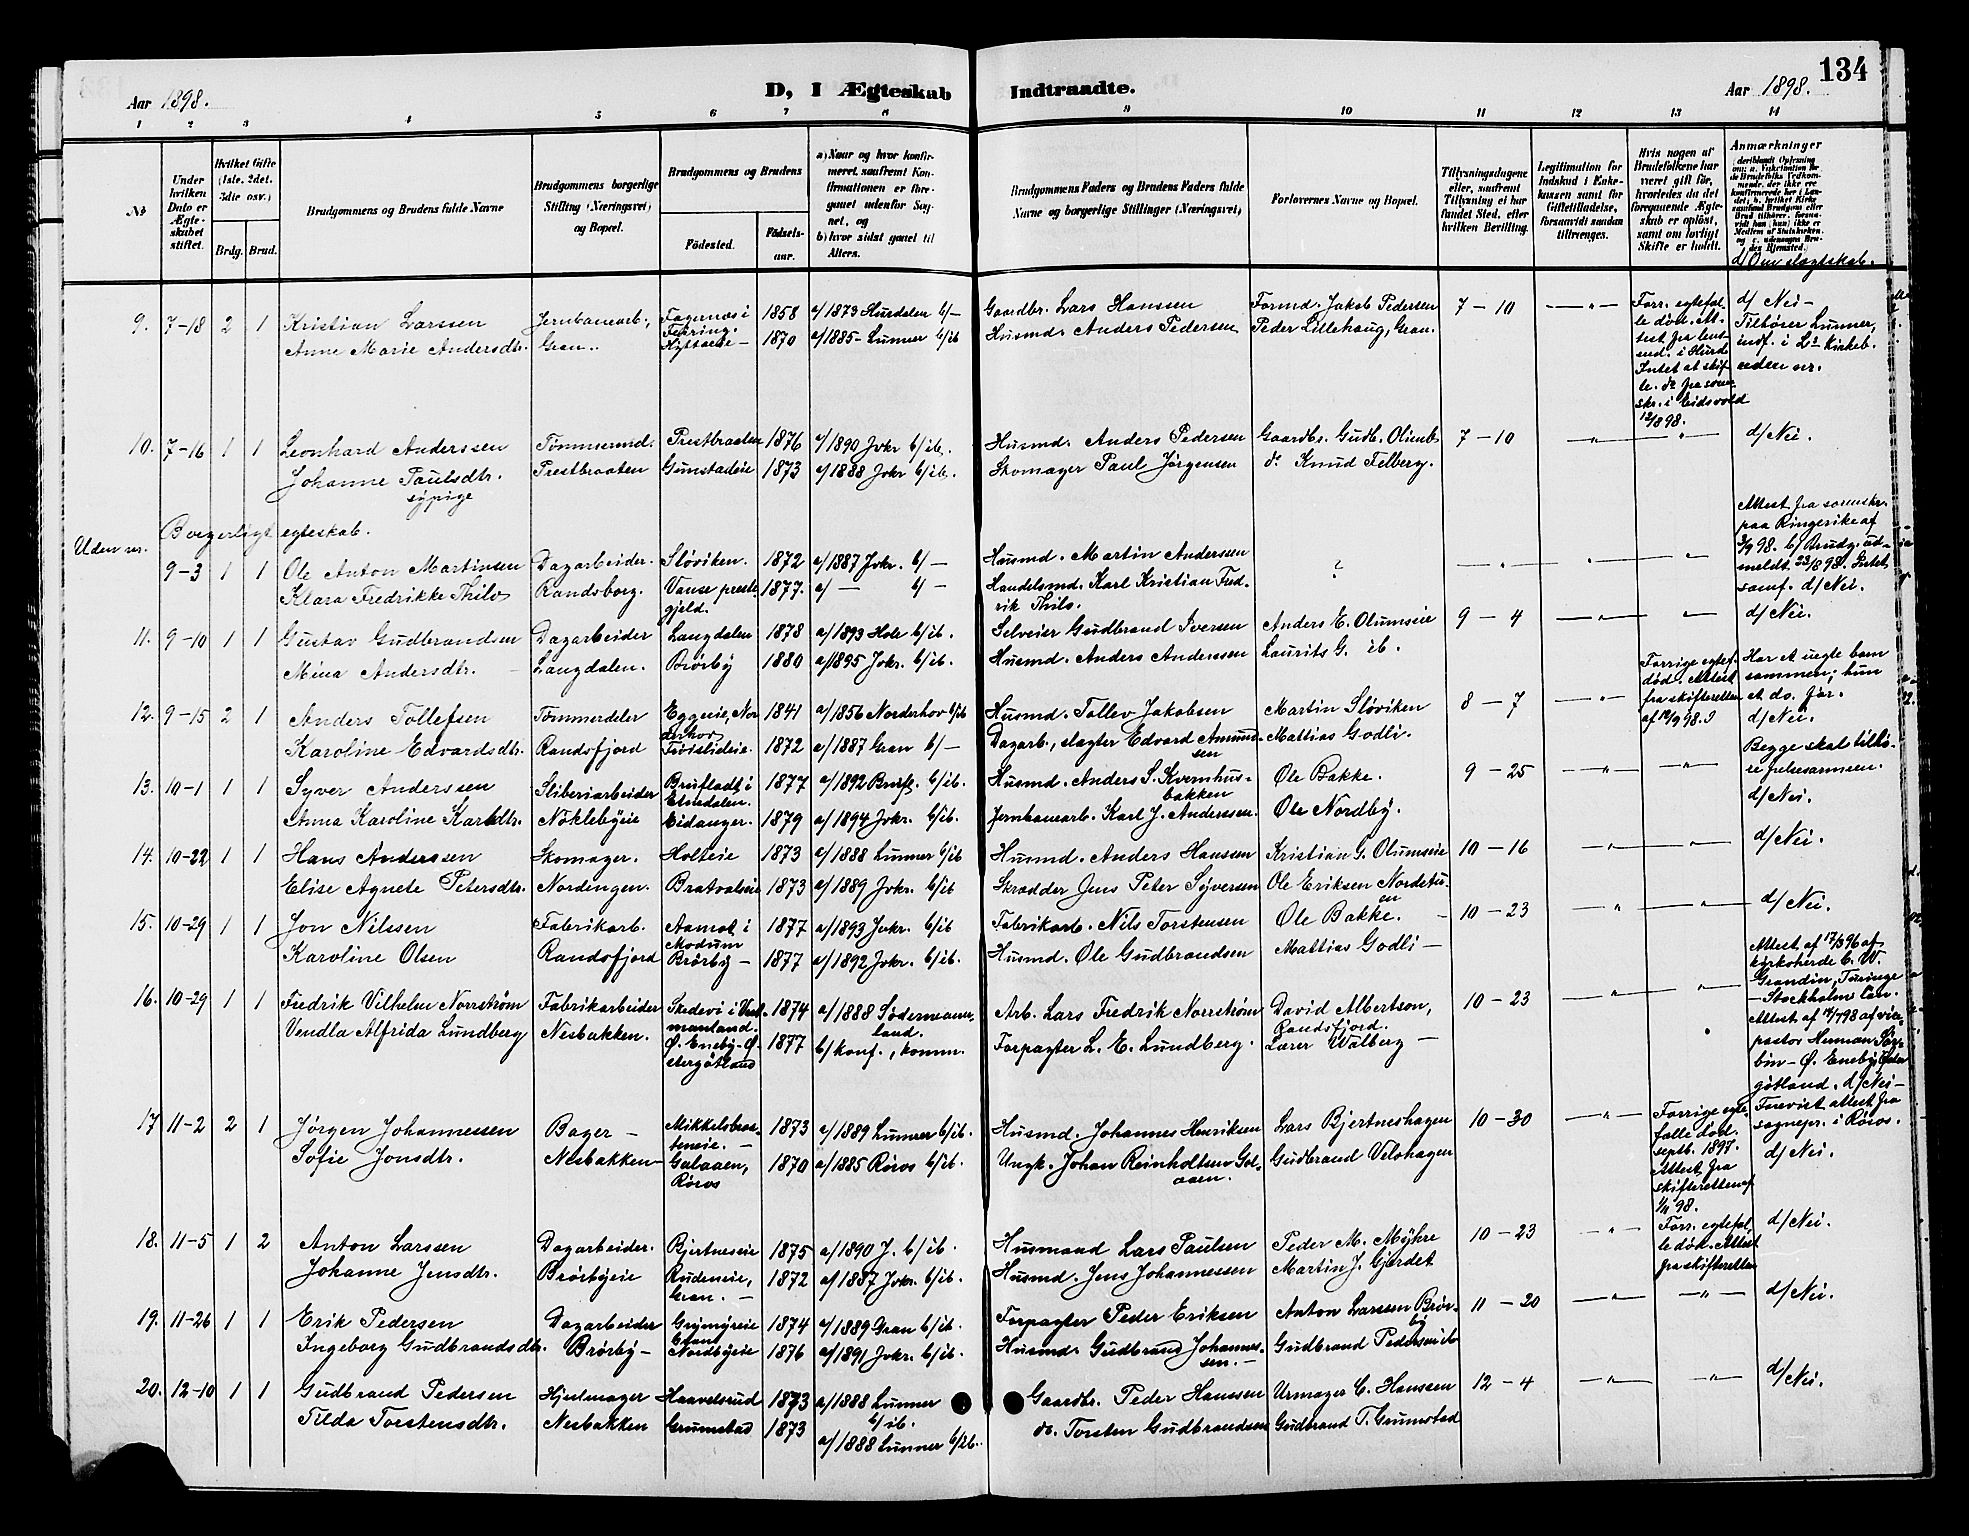 134
Aar 1898.
D, I Ægteskab Indtraadte.
Aar 1898.
1 2 3 4 5 6 7 8 9 10 11 12 13 14
No
Under hvilken Dato er Ægteskabet stiftet.
Hvilket Gifte (1ste, 2det, 3die osv.)
Brdg. Brud.
Brudgommens og Brudens fulde Navne
Brudgommens borgerlige Stilling (Næringsvei) og Bopæl.
Brudgommens og Brudens
Fødested.
Fødselsaar.
a) Naar og hvor konfirmeret, saafremt Konfirmationen er foregaaet udenfor Sognet, og
b) hvor sidst gaaet til Alters.
Brudgommens Faders og Brudens Faders fulde Navne og borgerlige Stillinger (Næringsvei)
Forlovernes Navne og Bopæl.
Tillysningsdagene eller, saafremt Tillysning ei har fundet Sted, efter hvilken Bevilling.
Legitimation for Indskud i Enkekassen samt for Giftetilladelse, forsaavidt saadan tiltrænges.
Hvis nogen af Brudefolkene har været gift før, hvorledes da det foregaaende Ægteskab er opløst, samt om lovligt Skifte er holdt.
Anmærkninger
d/ Om slægtskab.
9. 7-18 2 1 Kristian Larssen Jernbanearb., Fagernæs i Fehring. 1858 a/1873 Hurdalen b/— Gaardbr. Lars Hanssen Formd. Jakob Pedersen 7-10 — " — Forr. egtefælle død. Attest fra lensmd. i Hurd. Intet at skifte. do fra sorenskr. i Eidsvold 12/8 98. d/ Nei -
Anne Marie Andersdtr. Gran. Hyttaeie - 1870 a/1885 - Lunner b/ib Husmd. Anders Pedersen Peder Lillehaug, Gran. Tilhører Lunner, indf. i L's Kirkeb. uden nr.
10. 7-16 1 1 Leonhard Anderssen Tømmermd. Prestbraaten 1876 a/1890 Jvkr b/ib. Husmd. Anders Pedersen Gaardbr. Gudb. Olimb 7-10 — " — " d/ Nei.
Johanne Paulsdtr. Prestbraaten Gunstadeie 1873 a/1888 Jvkr b/ib. Skomager Paul Jørgensen do Knud Felberg.
sypige
Borgerligt egteskab.
Uden nr. 9-3 1 1 Ole Anton Martinsen Dagarbeider. Sløviken. 1872 a/1887 Jvkr. b/— Husmd. Martin Anderssen ? — " — Attest fra sorenskr. paa Ringerike af 3/9 98. b/ Brudg. udmeldt 23/8 98. Intet samf. d/ Nei.
Klara Fredrikke Thilo Randsborg. Vanse prestegjeld. 1877. a/— b/— Handelsmd. Karl Kristian Fredrik Thilo.
11. 9-10 1 1 Gustav Gudbrandsen Dagarbeider Langdalen 1878 a/1893 Hole b/ib. Selveier Gudbrand Iversen Anders E. Olumseie 9-4 — " — d/ Nei.
Mina Andersdtr. - Langdalen. Brørby 1880 a/1895 Jvkr. b/ib. Husmd. Anders Anderssen Laurits G. ib.
12. 9-15 2 1 Anders Tollefsen Tømmerdeler Eggeeie, Norderhov 1841 a/1856 Norderhov b/ib Husmd. Tollev Jakobsen Martin Sløviken 8-7 — " — Forrige egtef. død. Attest fra skifteretten af 12/9 98. Har et uegte barn sammen; hun et do. før. d/ Nei.
Karoline Edvardsdtr. Randsfjord 1872 a/1887 Gran b/— Dagarb., slagter Edvard Amundsen Mattias Godli.
13. 10-1 1 1 Syver Anderssen Sliberiarbeider Brufladt i Etnedalen. 1877 a/1892 Brufl. b/ib. Husmd. Anders S. Kvernhusbakken Ole Bakke. 9-25 — " — " — Begge skal tilhøre frelsesarmeen. d/ Nei.
Anna Karoline Karlsdtr. Nøklebyeie Eidanger. 1879 a/1894 Jvkr. b/ib. Jernbanearb. Karl J. Anderssen. Ole Nordby.
14. 10-22 1 1 Hans Anderssen Skomager. Holteie 1873 a/1888 Lunner b/ib Husmd. Anders Hanssen Kristian G. Olumseie 10-16 — " — " — d/ Nei.
Elise Agnete Petersdtr. Nordingen. Bratvaleie 1873 a/1889 Jvkr. b/ib Skrædder Jens Peter Syversen Ole Eriksen Nordstuen
15. 10-29 1 1 Jon Nilssen Fabrikarb. Aamot i Modum 1877 a/1893 Jvkr. b/ib Fabrikarb. Nils Torstensen Ole Bakke. - 10-23 — " — " — d/ Nei.
Karoline Olsen Randsfjord Brørby - 1877 a/1892 Jvkr. b/ib. Husmd. Ole Gudbrandsen Mattias Godli -
16. 10-29 1 1 Fredrik Vilhelm Norrstrøm Fabrikarbeider Skedevi i Vestmanland. 1874 a/1888 Södermanerland. Arb. Lars Fredrik Norrstrøm David Albertson, Randsfjord. 10-23 — " — " — Attest af 17/3 96 af kirkoherde C. W. Grandin, Turinge - Stockholms län.
Vendla Alfrida Lundberg Nesbakken. Ø. Eneby - Østergötland 1877 b/ konf., komm. Forpagter L. E. Lundberg. Lærer Walberg - Attest af 14/7 98 af vicepastor Herman - Ø. Eneby Østergötland. d/ Nei -
17 11-2 2 1 Jørgen Johannessen Bager - 1873 a/1889 Lunner b/ib. Husmd. Johannes Henriksen Lars Bjertneshagen 10-30 — " — Forrige egtefælle død septb. 1897. Attest fra skifteretten af 1/11 98. Forevist attest fra sognepr. i Røros. d/ Nei.
Sofie Jonsdtr. Nesbakken - Galaaen, Røros 1870 a/1885 Røros b/ib. Ungk. Johan Reinholtsen Galaaen. Gudbrand Velohagen
18. 11-5 1 2 Anton Larssen Dagarbeider. Bjertneseie 1875 a/1890 J. b/ib. Husmand Lars Paulsen Peder M. Myhre 10-23 " — Forr. egtefælle død. Attest fra skifteretten d/ Nei.
Johanne Jensdtr. Brørbyeie Rudeneie, Gran. - 1872 a/1887 Jvkr. b/ib. Husmd. Jens Johannessen Martin J. Gjerdet
19. 11-26 1 1 Erik Pedersen Dagarbeider Grymyreie Gran 1874 a/1889 Gran b/ib. Forpagter Peder Eriksen Anton Larssen Brørby 11-20 — " — — " — d/ Nei.
Ingeborg Gudbrandsdtr. Brørby - Nordbyeie 1876 a/1891 Jvkr. b/ib. Husmd. Gudbrand Johannessen. - Gudbrand Pedersen ib
20. 12-10 1 1 Gudbrand Pedersen Hjulmager Haavelsrud 1873 a/1888 Lunner b/ib. Gaardbr. Peder Hanssen Urmager C. Hanssen 12-4 — " — — " — d/ Nei.
Tilda Torstensdtr. Nesbakken Grumstad 1873 a/1888 Lunner b/ib. do. Torsten Gudbrandsen Gudbrand T. Grumstad